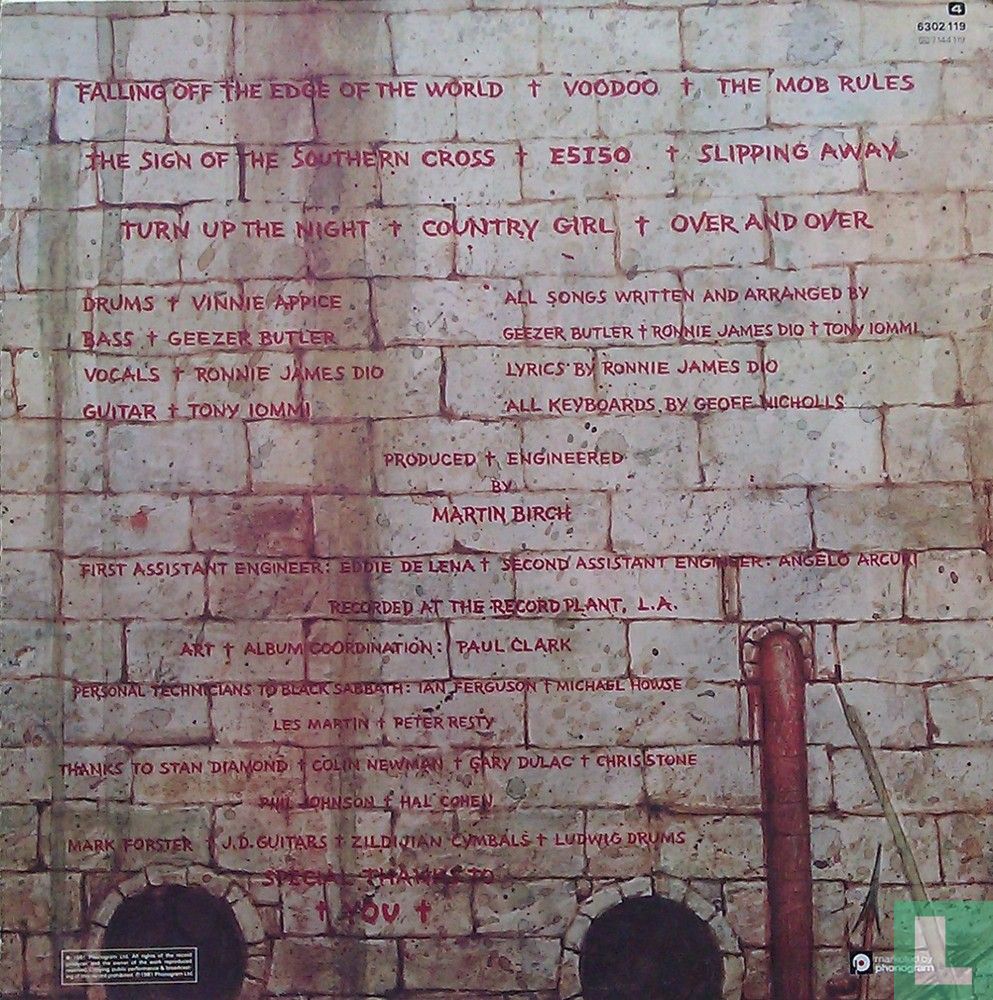 4
6302 119
7144 119
FALLING OFF THE EDGE OF THE WORLD † VOODOO † THE MOB RULES
THE SIGN OF THE SOUTHERN CROSS † E5I5O † SLIPPING AWAY
TURN UP THE NIGHT † COUNTRY GIRL † OVER AND OVER
DRUMS † VINNIE APPICE
BASS † GEEZER BUTLER
VOCALS † RONNIE JAMES DIO
GUITAR † TONY IOMMI
ALL SONGS WRITTEN AND ARRANGED BY
GEEZER BUTLER † RONNIE JAMES DIO † TONY IOMMI
LYRICS BY RONNIE JAMES DIO
ALL KEYBOARDS BY GEOFF NICHOLLS
PRODUCED † ENGINEERED
BY
MARTIN BIRCH
FIRST ASSISTANT ENGINEER: EDDIE DE LENA † SECOND ASSISTANT ENGINEER: ANGELO ARCURI
RECORDED AT THE RECORD PLANT, L.A.
ART † ALBUM COORDINATION: PAUL CLARK
PERSONAL TECHNICIANS TO BLACK SABBATH: IAN FERGUSON † MICHAEL HOWSE
LES MARTIN † PETER RESTY
THANKS TO STAN DIAMOND † COLIN NEWMAN † GARY DULAC † CHRIS STONE
PHIL JOHNSON † HAL COHEN
MARK FORSTER † J.D. GUITARS † ZILDIJIAN CYMBALS † LUDWIG DRUMS
SPECIAL THANKS TO
† YOU †
℗ 1981 Phonogram Ltd. All rights of the record
producer and the owner of the work reproduced
reserved. Copying public performance & broadcast-
ing of this record prohibited. © 1981 Phonogram Ltd.
marketed by
phonogram
L